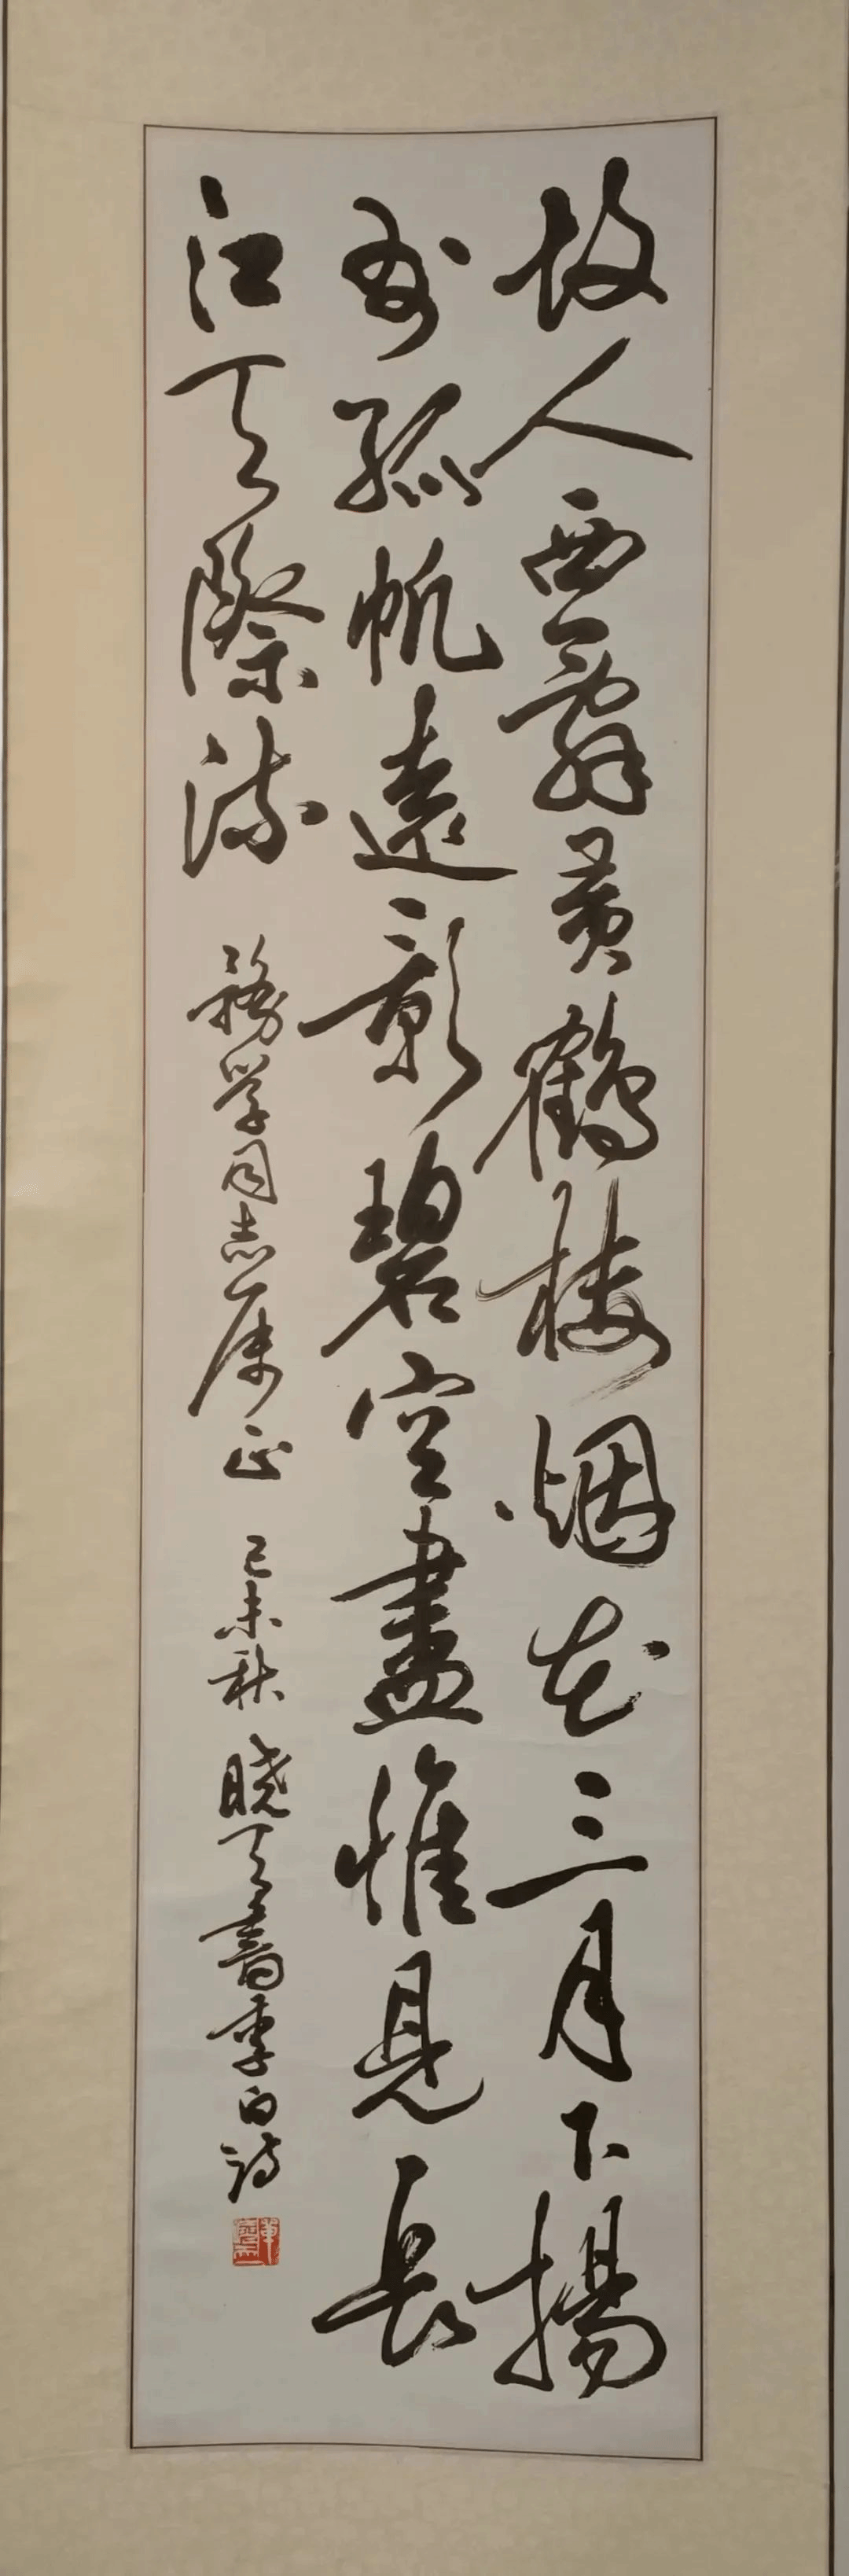 故人西辭黄鶴楼烟花三月下揚
州孤帆遠影碧空盡惟見長
江天際流
務学同志属正
己未秋
晓天書李白詩